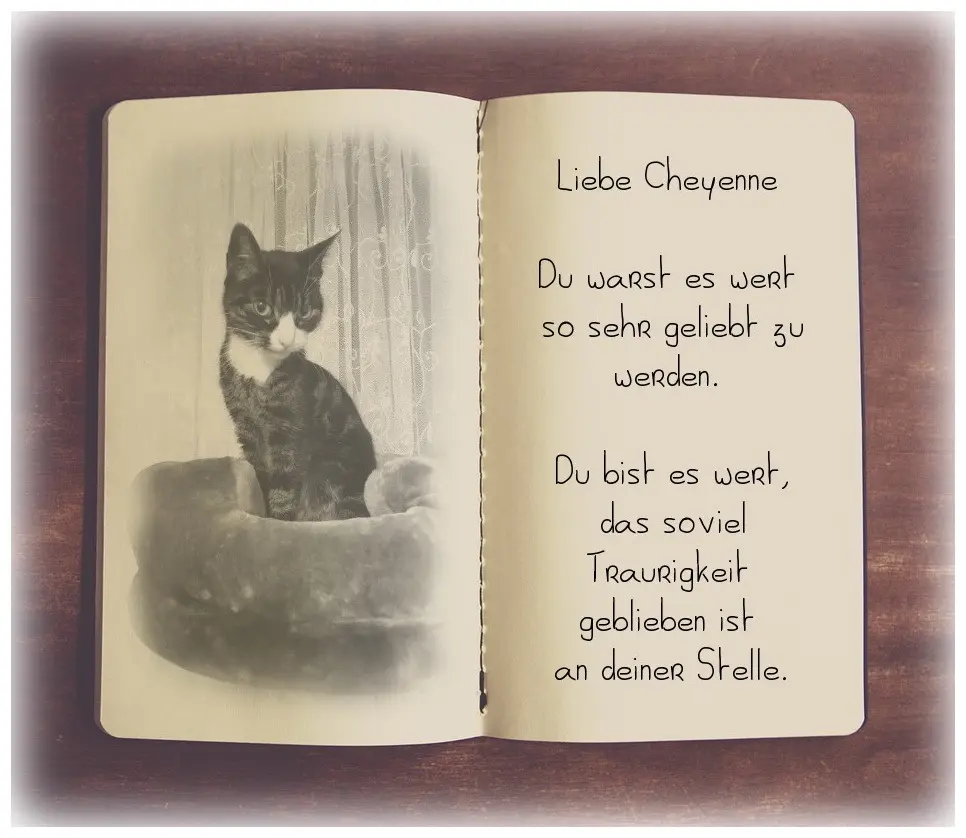 Liebe Cheyenne
Du warst es wert
so sehr geliebt zu
werden.
Du bist es wert,
das soviel
Traurigkeit
geblieben ist
an deiner Stelle.